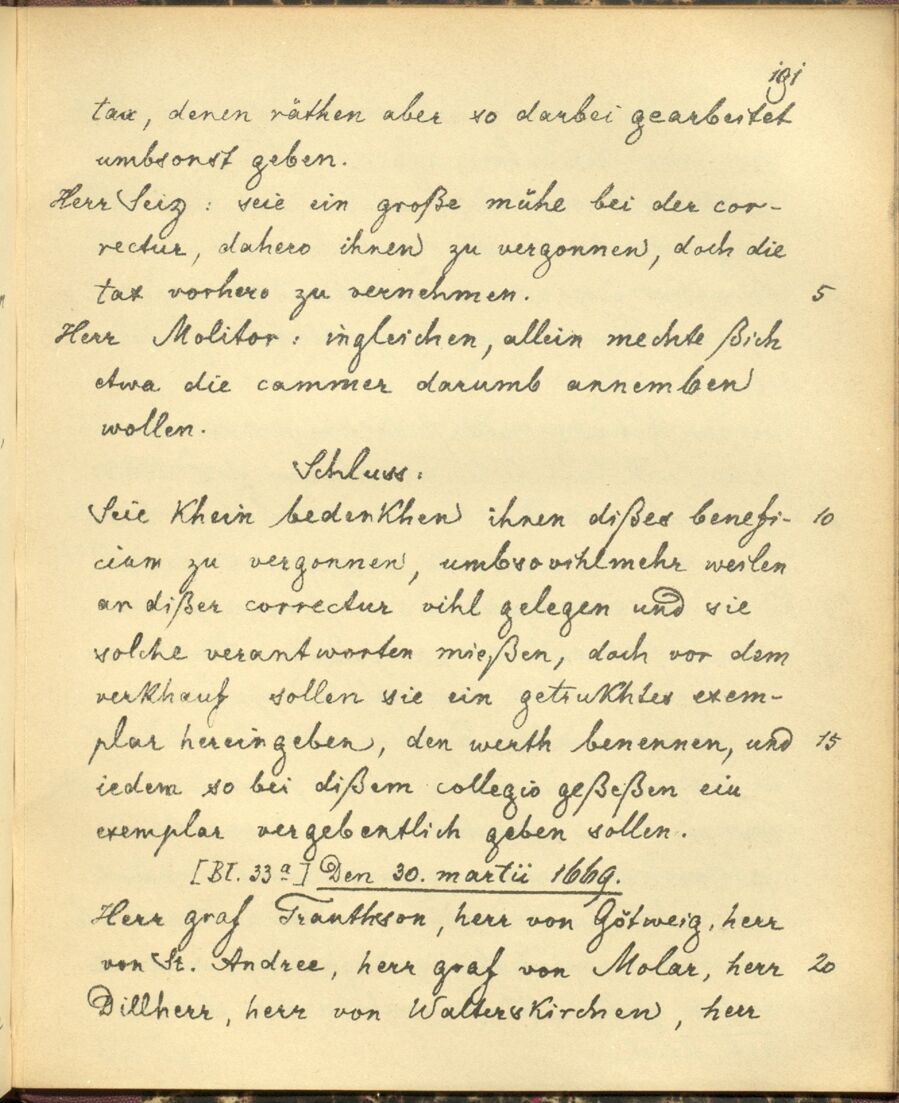 191
tax, denen räthen aber so darbei gearbeitet
umbsonst geben.
Herr Seiz : seie ein große mühe bei der cor-
rectur, dahero ihnen zu vergonnen, doch die
tax vorhero zu vernehmen. 5
Herr Molitor : ingleichen, allein mechte ßich
etwa die cammer darumb annemben
wollen.
Schluss :
Seie Khein bedenKhen ihnen dißes benefi- 10
cium zu vergonnen, umbsovihlmehr weilen
an dißer correctur vihl gelegen und sie
solche verantworten mießen, doch vor dem
verKhauf sollen sie ein getruKhtes exem-
plar hereingeben, den werth benennen, und 15
iedem so bei dißem collegio geßeßen ein
exemplar vergebentlich geben sollen.
[Bl. 33a] Den 30. martii 1669.
Herr graf Trauthson, herr von Götweig, herr
von St. Andree, herr graf von Molar, herr 20
Dillherr, herr von WaltersKirchen, herr